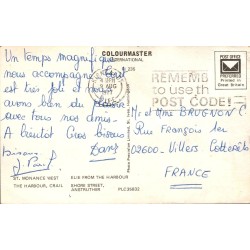 COLOURMASTER
INTERNATIONAL
Un temps magnifique
nous accompagne. Tout
est très joli et nous
aurons bien du plaisir
avec tous nos amis.
A bientôt Gros bisous
Dany
Bisous
ST. MONANCE WEST ELIE FROM THE HARBOUR
THE HARBOUR, CRAIL SHORE STREET,
ANSTRUTHER
AUG
REMEMB
to use th
POST CODE!
POSTCARD
PREFERRED
Printed in
Great Britain
M et Mme BRUGNON C
Rue François 1er
02600 - Villers Cotterêts
FRANCE